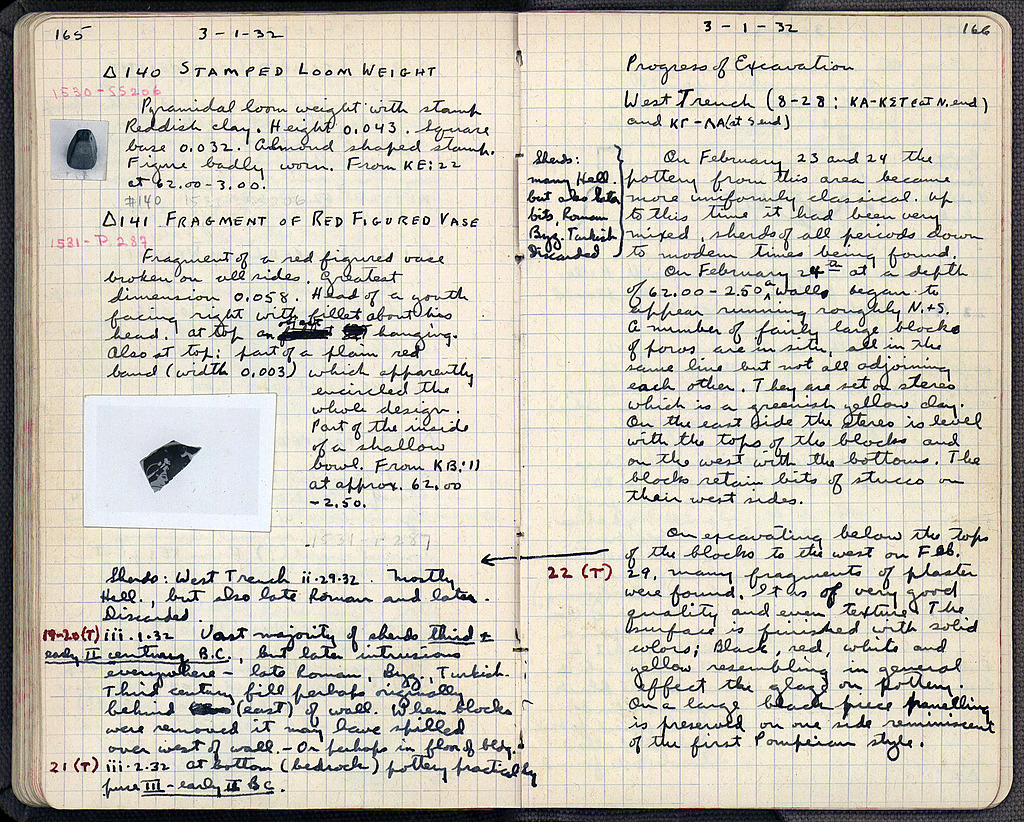 165
3-1-32
Δ140 STAMPED LOOM WEIGHT
1530-SS206
Pyramidal loom weight with stamp
Reddish clay. Height 0.043. Square
base 0.032. Almond shaped stamp.
Figure badly worn. From KE:22
at 62.00-3.00.
#140
Δ141 FRAGMENT OF RED FIGURED VASE
1531-P 287
Fragment of a red figured vase
broken on all sides. Greatest
dimension 0.058. Head of a youth
facing right with fillet about his
head. At top an object hanging.
Also at top: part of a plain red
band (width 0.003) which apparently
encircled the
whole design.
Part of the inside
of a shallow
bowl. From KB:11
at approx. 62.00
-2.50.
1531-P-287
Sherds: West Trench ii.29.32. Mostly
Hell., but also late Roman and later.
Discarded.
19-20(T) iii.1.32 Vast majority of sherds third &
early II century B.C., but later intrusions
everywhere - late Roman, Byz., Turkish.
Third century fill perhaps originally
behind (east) of wall. When blocks
were removed it may have spilled
over west of wall. - Or perhaps in floor of bldg.
21 (T) iii.2.32 At bottom (bedrock) pottery practically
pure III - early II B.C.
3-1-32
166
Progress of Excavation
West Trench (8-28: KA-KΣT at N. end)
and KΓ-ΛA (at S end)
Sherds:
many Hell
but also later
bits, Roman
Byz. Turkish
Discarded
On February 23 and 24 the
pottery from this area became
more uniformly classical. Up
to this time it had been very
mixed, sherds of all periods down
to modern times being found.
On February 24th at a depth
of 62.00-2.50 a walls began to
appear running roughly N.+S.
A number of fairly large blocks
of poros are in situ, all in the
same line but not all adjoining
each other. They are set on stereo
which is a greenish yellow clay.
On the east side the stereo is level
with the tops of the blocks and
on the west with the bottoms. The
blocks retain bits of stucco on
their west sides.
On excavating below the tops
of the blocks to the west on Feb.
22 (T) 29, many fragments of plaster
were found. It is of very good
quality and even texture. The
surface is finished with solid
colors; Black, red, white and
yellow resembling in general
effect the glaze on pottery.
On a large black piece panelling
is preserved on one side reminiscent
of the first Pompeian style.